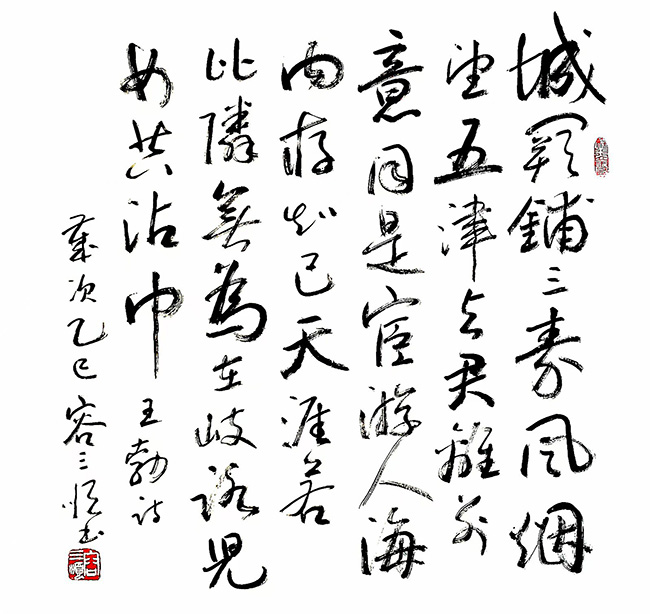 城闕鋪三秦風烟
望五津与君離别
意同是宦游人海
内存知己天涯若
比隣無為在歧路児
女共沾巾
王勃詩
歲次乙巳 容三书